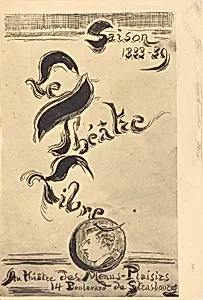 Saison
1888-89
Le
Théâtre
Libre
Au théâtre des Menus-Plaisirs
14 Boulevard de Strasbourg